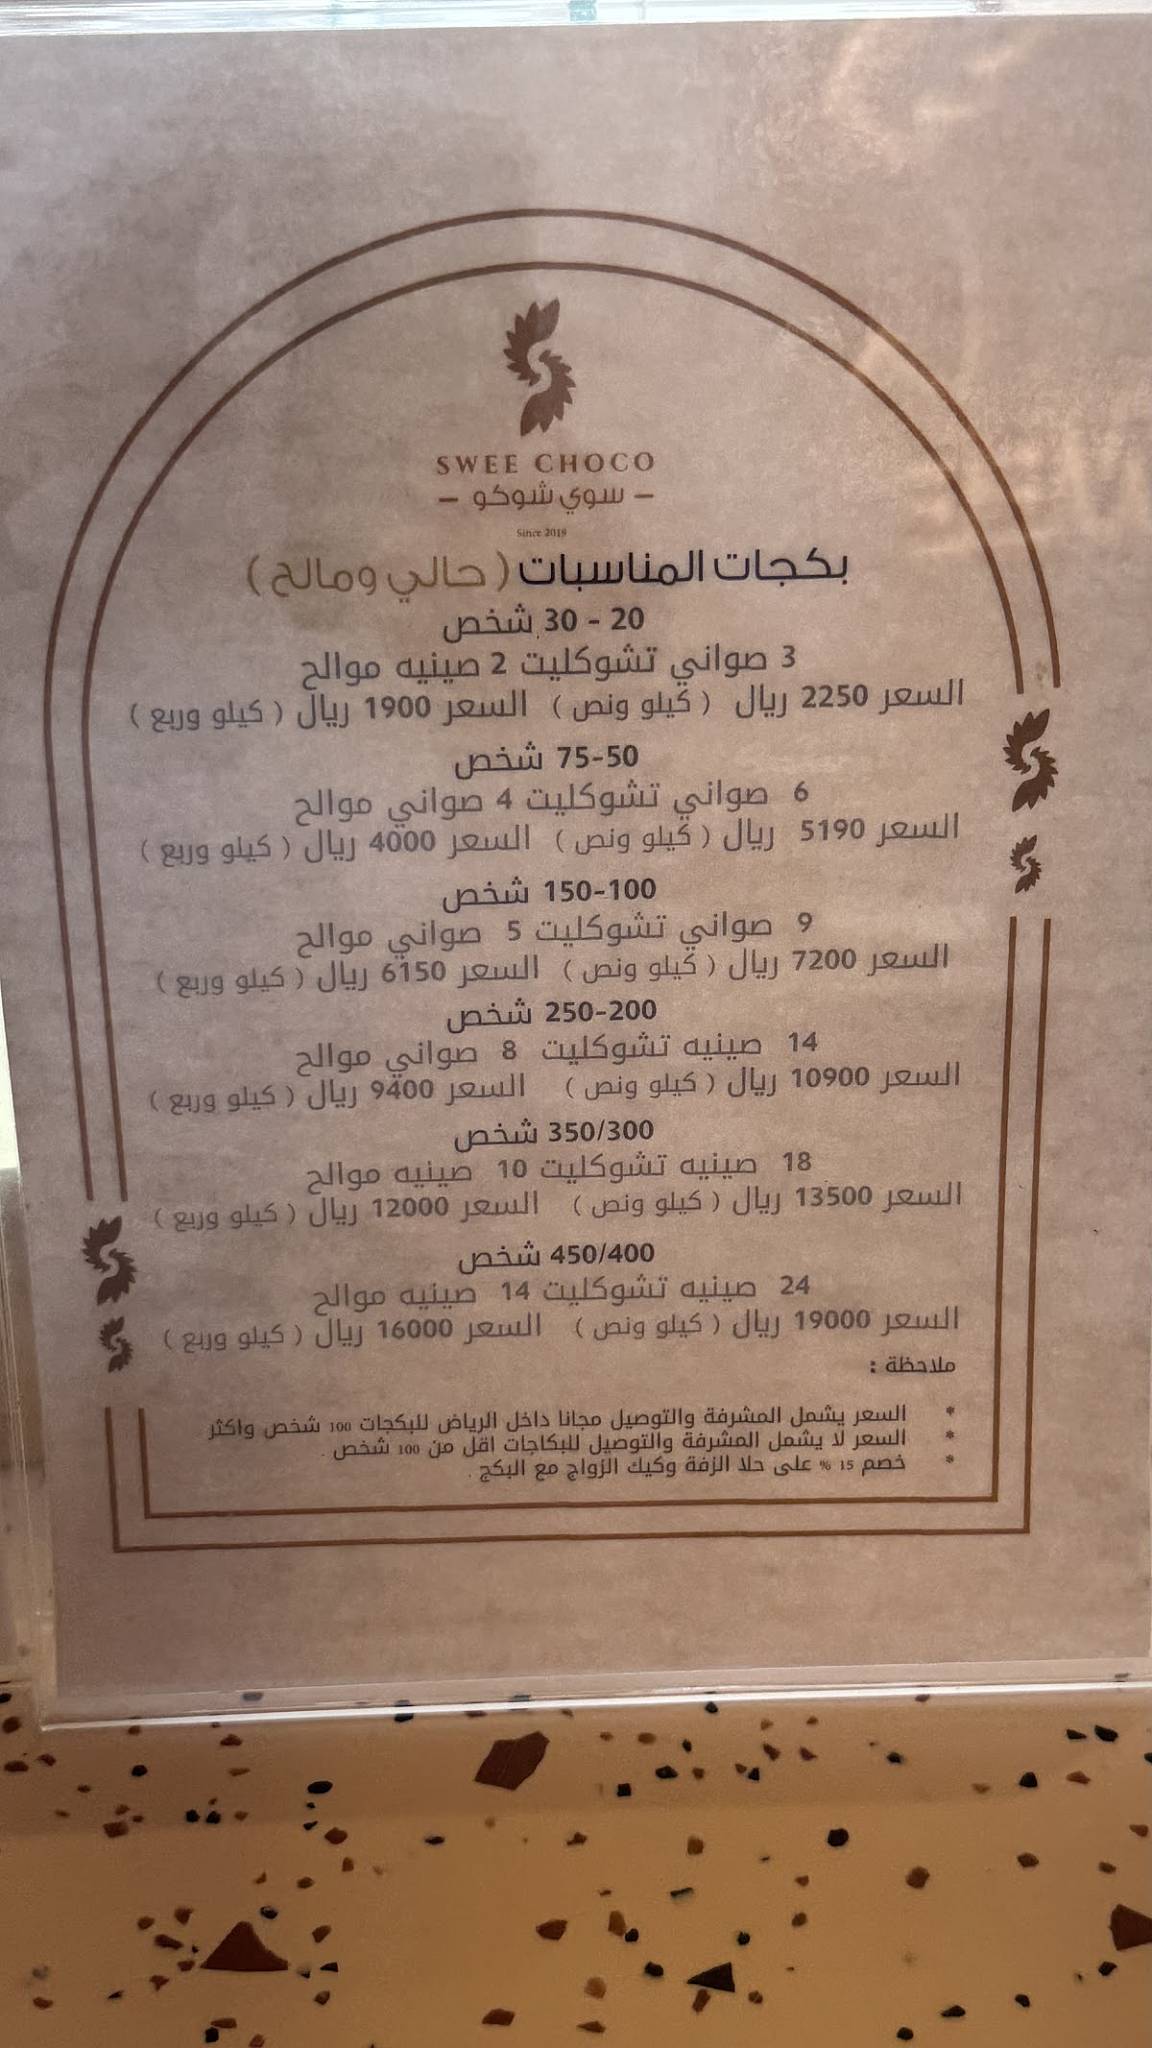 SWEE CHOCO
– سوي شوكو –
Since 2019
بكجات المناسبات ( حالي ومالح )
20 - 30 شخص
3 صواني تشوكليت 2 صينيه موالح
السعر 2250 ريال ( كيلو ونص ) السعر 1900 ريال ( كيلو وربع )
50-75 شخص
6 صواني تشوكليت 4 صواني موالح
السعر 5190 ريال ( كيلو ونص ) السعر 4000 ريال ( كيلو وربع )
100-150 شخص
9 صواني تشوكليت 5 صواني موالح
السعر 7200 ريال ( كيلو ونص ) السعر 6150 ريال ( كيلو وربع )
200-250 شخص
14 صينيه تشوكليت 8 صواني موالح
السعر 10900 ريال ( كيلو ونص ) السعر 9400 ريال ( كيلو وربع )
350/300 شخص
18 صينيه تشوكليت 10 صينيه موالح
السعر 13500 ريال ( كيلو ونص ) السعر 12000 ريال ( كيلو وربع )
450/400 شخص
24 صينيه تشوكليت 14 صينيه موالح
السعر 19000 ريال ( كيلو ونص ) السعر 16000 ريال ( كيلو وربع )
ملاحظة :
* السعر يشمل المشرفة والتوصيل مجانا داخل الرياض للبكجات 100 شخص واكثر
* السعر لا يشمل المشرفة والتوصيل للبكاجات اقل من 100 شخص .
* خصم 15 % على حلا الزفة وكيك الزواج مع البكج .